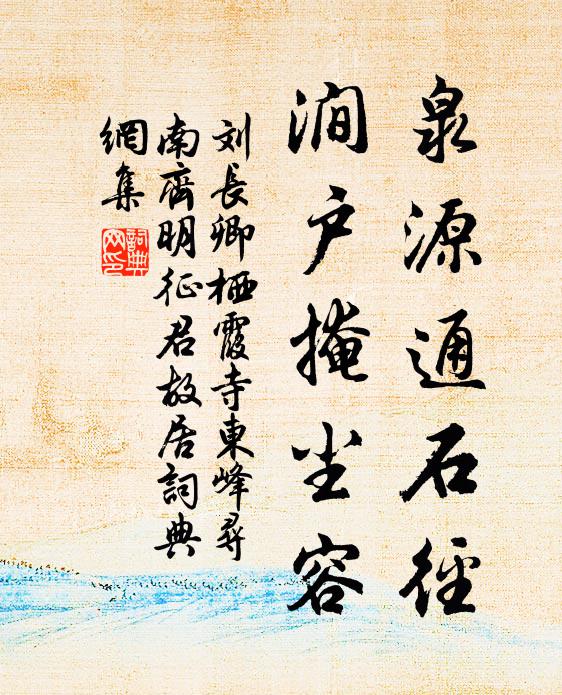 泉源通石徑
澗户掩尘容
刘長卿栖霞寺東峰尋
南齊明征君故居詞典
網集
詞典
网印